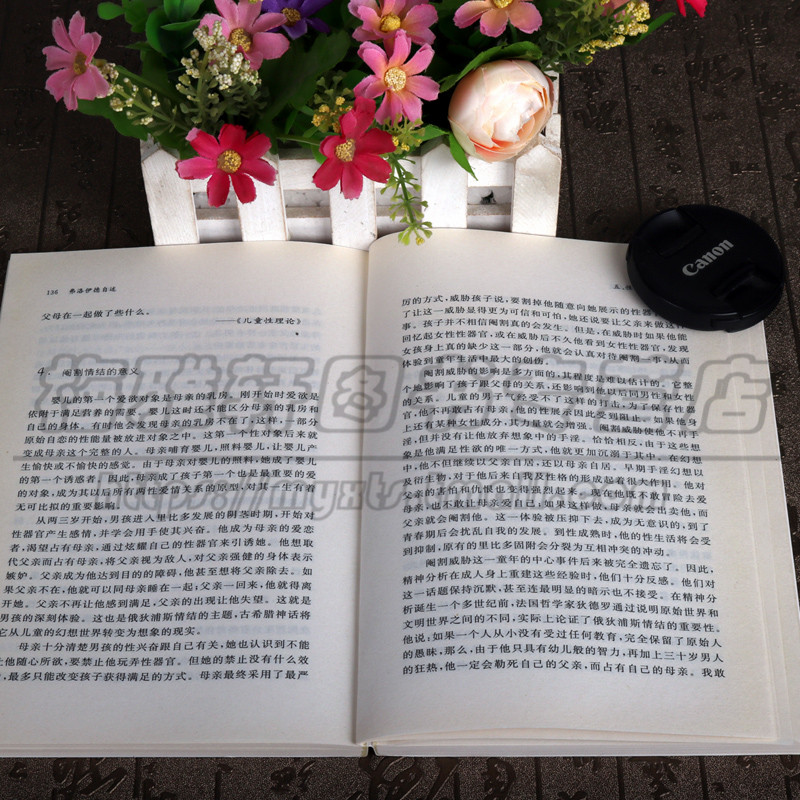 136 弗洛伊德自述
父母在一起做了些什么。
——《儿童性理论》
4. 阉割情结的意义
婴儿的第一个爱欲对象是母亲的乳房。刚开始时爱欲是
依附于满足营养的需要。婴儿这时还不能区分母亲的乳房和
自己的身体。有时他会发现母亲的乳房不在了,这样,一部分
原始自恋的性能量被放进对象之中。这第一个性对象后来就
变成母亲这个完整的人。母亲哺育婴儿,照料婴儿,让婴儿产
生愉快或不愉快的感觉。由于母亲对婴儿的照料,她成了婴儿
的第一个诱惑者。因此,母亲成了孩子第一个也是最重要的爱
的对象,成为其以后所有两性爱情关系的原型,对其一生有着
无可比拟的重要影响。
从两三岁开始,男孩进入里比多发展的阴茎时期,开始对
性器官产生感情,并学会用手使其兴奋。他成为母亲的爱恋
者,渴望占有母亲,通过炫耀自己的性器官来引诱她。他想取
代父亲而占有母亲,将父亲视为敌人,对父亲强健的身体表示
嫉妒。父亲成为他达到目的的障碍,他甚至想将父亲除去。如
果父亲不在,他就可以同母亲睡在一起;父亲一回来,他就得离
开她。父亲不再让他感到满足,父亲的出现让他失望。这就是
男孩的深刻体验。这也是俄狄浦斯情结的主题,古希腊神话将
它从儿童的幻想世界转变为想象的现实。
母亲十分清楚男孩的性兴奋跟自己有关,她也认识到不能
让他随心所欲,要禁止他玩弄性器官。但她的禁止没有什么效
,最多只能改变孩子获得满足的方式。母亲最终采用了最严
五、
厉的方式,威胁孩子说,要割掉他随意向她展示的性器
了让这一威胁显得更为可信和可怕,她还说要让父亲来做这样
事。孩子并不相信阉割真的会发生。但是,在威胁时如果他能
回忆起女性性器官,或在威胁后不久他看到女性性器官,发现
女孩身上真的缺少这一部分,他就会认真对待阉割一事,从而
体验到童年生活中最大的创伤。
阉割威胁的影响是多方面的,其程度是难以估计的。它整
个地影响了孩子跟父母的关系,还影响到他以后同男性和女性
的关系。儿童的男子气经受不了这样的打击,为了保存性器
官,他不再敢占有母亲,他的性展示因此受到阻止。如果他身
上还有某种女性成分,其力量就会增强。阉割威胁使他不再手
淫,但并没有让他放弃想象中的手淫。恰恰相反,由于这些想
象是他满足性欲的唯一方式,他就更加沉溺于其中。在幻想
中,他不但继续以父亲自居,还以母亲自居。早期手淫幻想以
及衍生物,对于他后来自我及性格的形成起了很大作用。他对
父亲的害怕和仇恨也变得强烈起来。现在他既不敢冒险去爱
母亲,也不敢让母亲爱自己;如果这样做,母亲就会出卖他,而
父亲就会阉割他。这一体验被压抑下去,成为无意识的,到了
青春期后会扰乱自我的发展。到性成熟时,他的性生活将会受
到抑制,原有的里比多固附会分裂为互相冲突的冲动。
阉割威胁这一童年的中心事件后来被完全遗忘了。因此,
精神分析在成人身上重建这些经验时,他们十分反感。他们对
这一话题保持沉默,甚至连最明显的暗示也不接受。在精神分
析诞生一个多世纪前,法国哲学家狄德罗通过说明原始世界和
文明世界之间的不同,实际上论证了俄狄浦斯情结的重要性。
他说:如果一个人从小没有受过任何教育,完全保留了原始人
的愚昧,那么,由于他只具有幼儿般的智力,再加上三十岁男人
的狂热,他一定会勒死自己的父亲,而占有自己的母亲。我敢
Canon